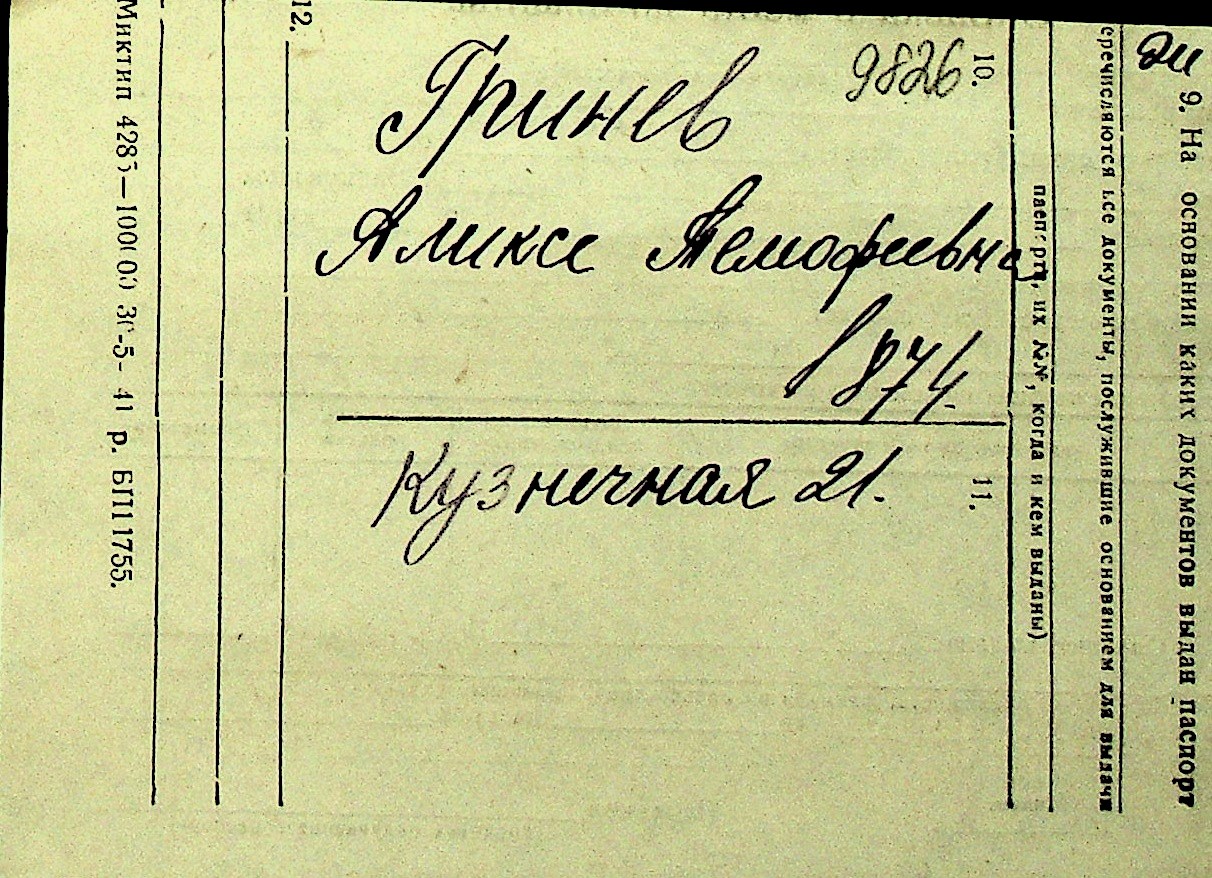 9826
Гринев
Аликсе Темофеевна
1874.
Кузнечная 21.
9. На основании каких документов выдан паспорт
еречисляются все документы, послужившие основанием для выдачи
паспорта, их №№, когда и кем выданы)
10.
11.
12.
Миктип 4285—100000 30-5- 41 р. БП11755.